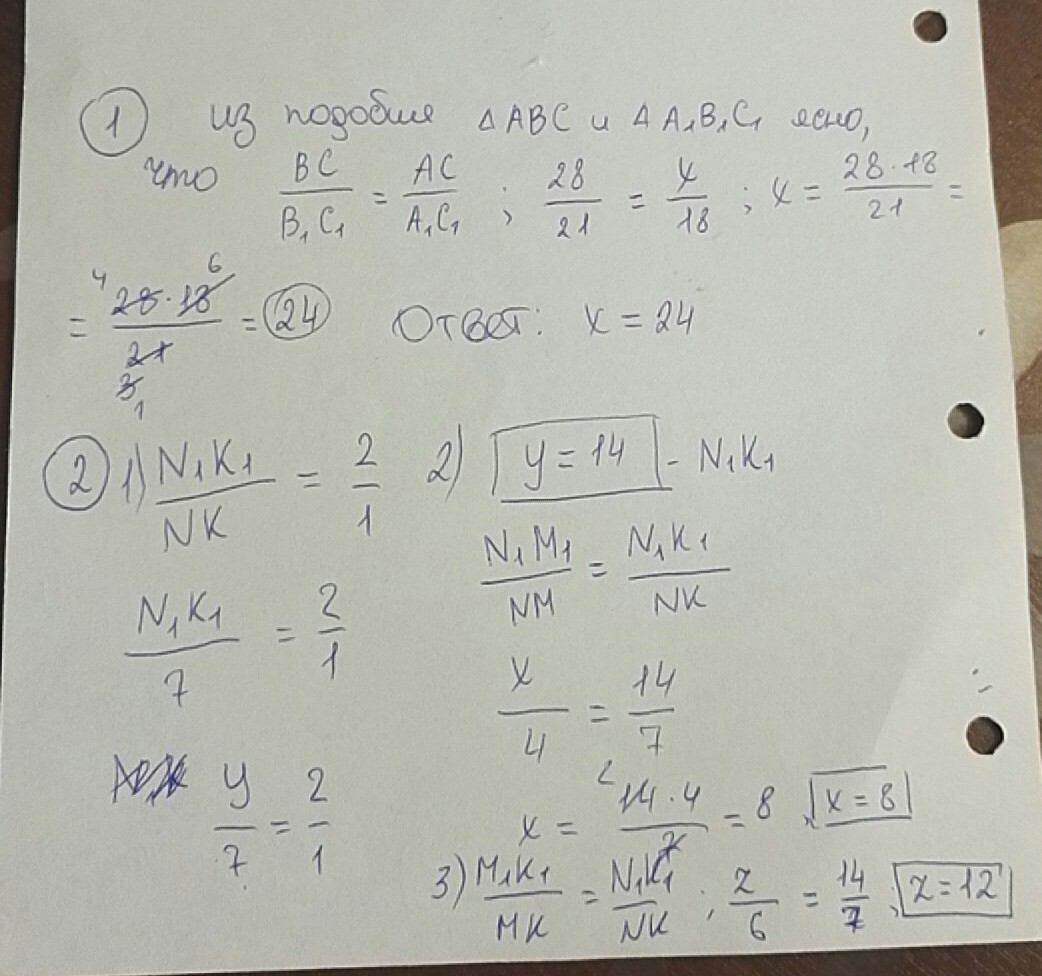 ① Из подобия ΔABC и ΔA₁B₁C₁ ясно,
что BC/B₁C₁ = AC/A₁C₁ ; 28/21 = x/18 ; x = 28·18/21 =
= 28·18/21 = 24 Ответ: x = 24
4 6 3 1
② 1) N₁K₁/NK = 2/1 2) y = 14 - N₁K₁
N₁M₁/NM = N₁K₁/NK
N₁K₁/7 = 2/1
x/4 = 14/7
y/7 = 2/1
x = 14·4/7 = 8, x = 8
2
3) M₁K₁/MK = N₁K₁/NK ; z/6 = 14/7 ; z = 12